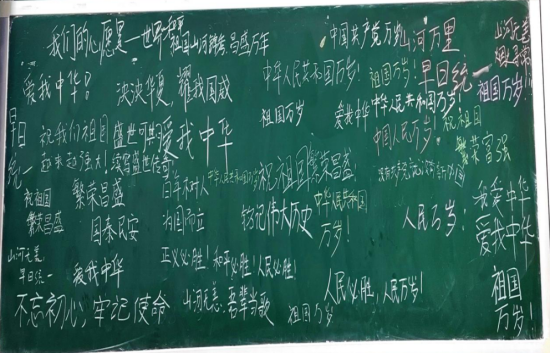 我们的心愿是一世界
祖国山河锦秀,昌盛万年
中国共产党万岁
山河万里
山河无恙
爱我中华!
泱泱华夏,耀我国威
中华人民共和国万岁!
祖国万岁!
早日统一
祖国万岁!
祖国万岁
爱我中华
中华人民共和国万岁!
中国人民万岁!
祝祖国
繁荣富强
早日统一
祝我们祖国
越来越强大!
盛世可期
续写盛世传奇
爱我中华
祝祖国
繁荣昌盛
繁荣昌盛
国泰民安
为国而立
祝祖国繁荣昌盛
铭记伟大历史
中华人民共和国
万岁!
人民万岁!
我爱中华
爱我中华
祖国
万岁!
山河无恙
早日统一
爱我中华
正义必胜!和平必胜!人民必胜!
不忘初心,牢记使命
山河无恙,吾辈当歌
祖国万岁
人民必胜,人民万岁!